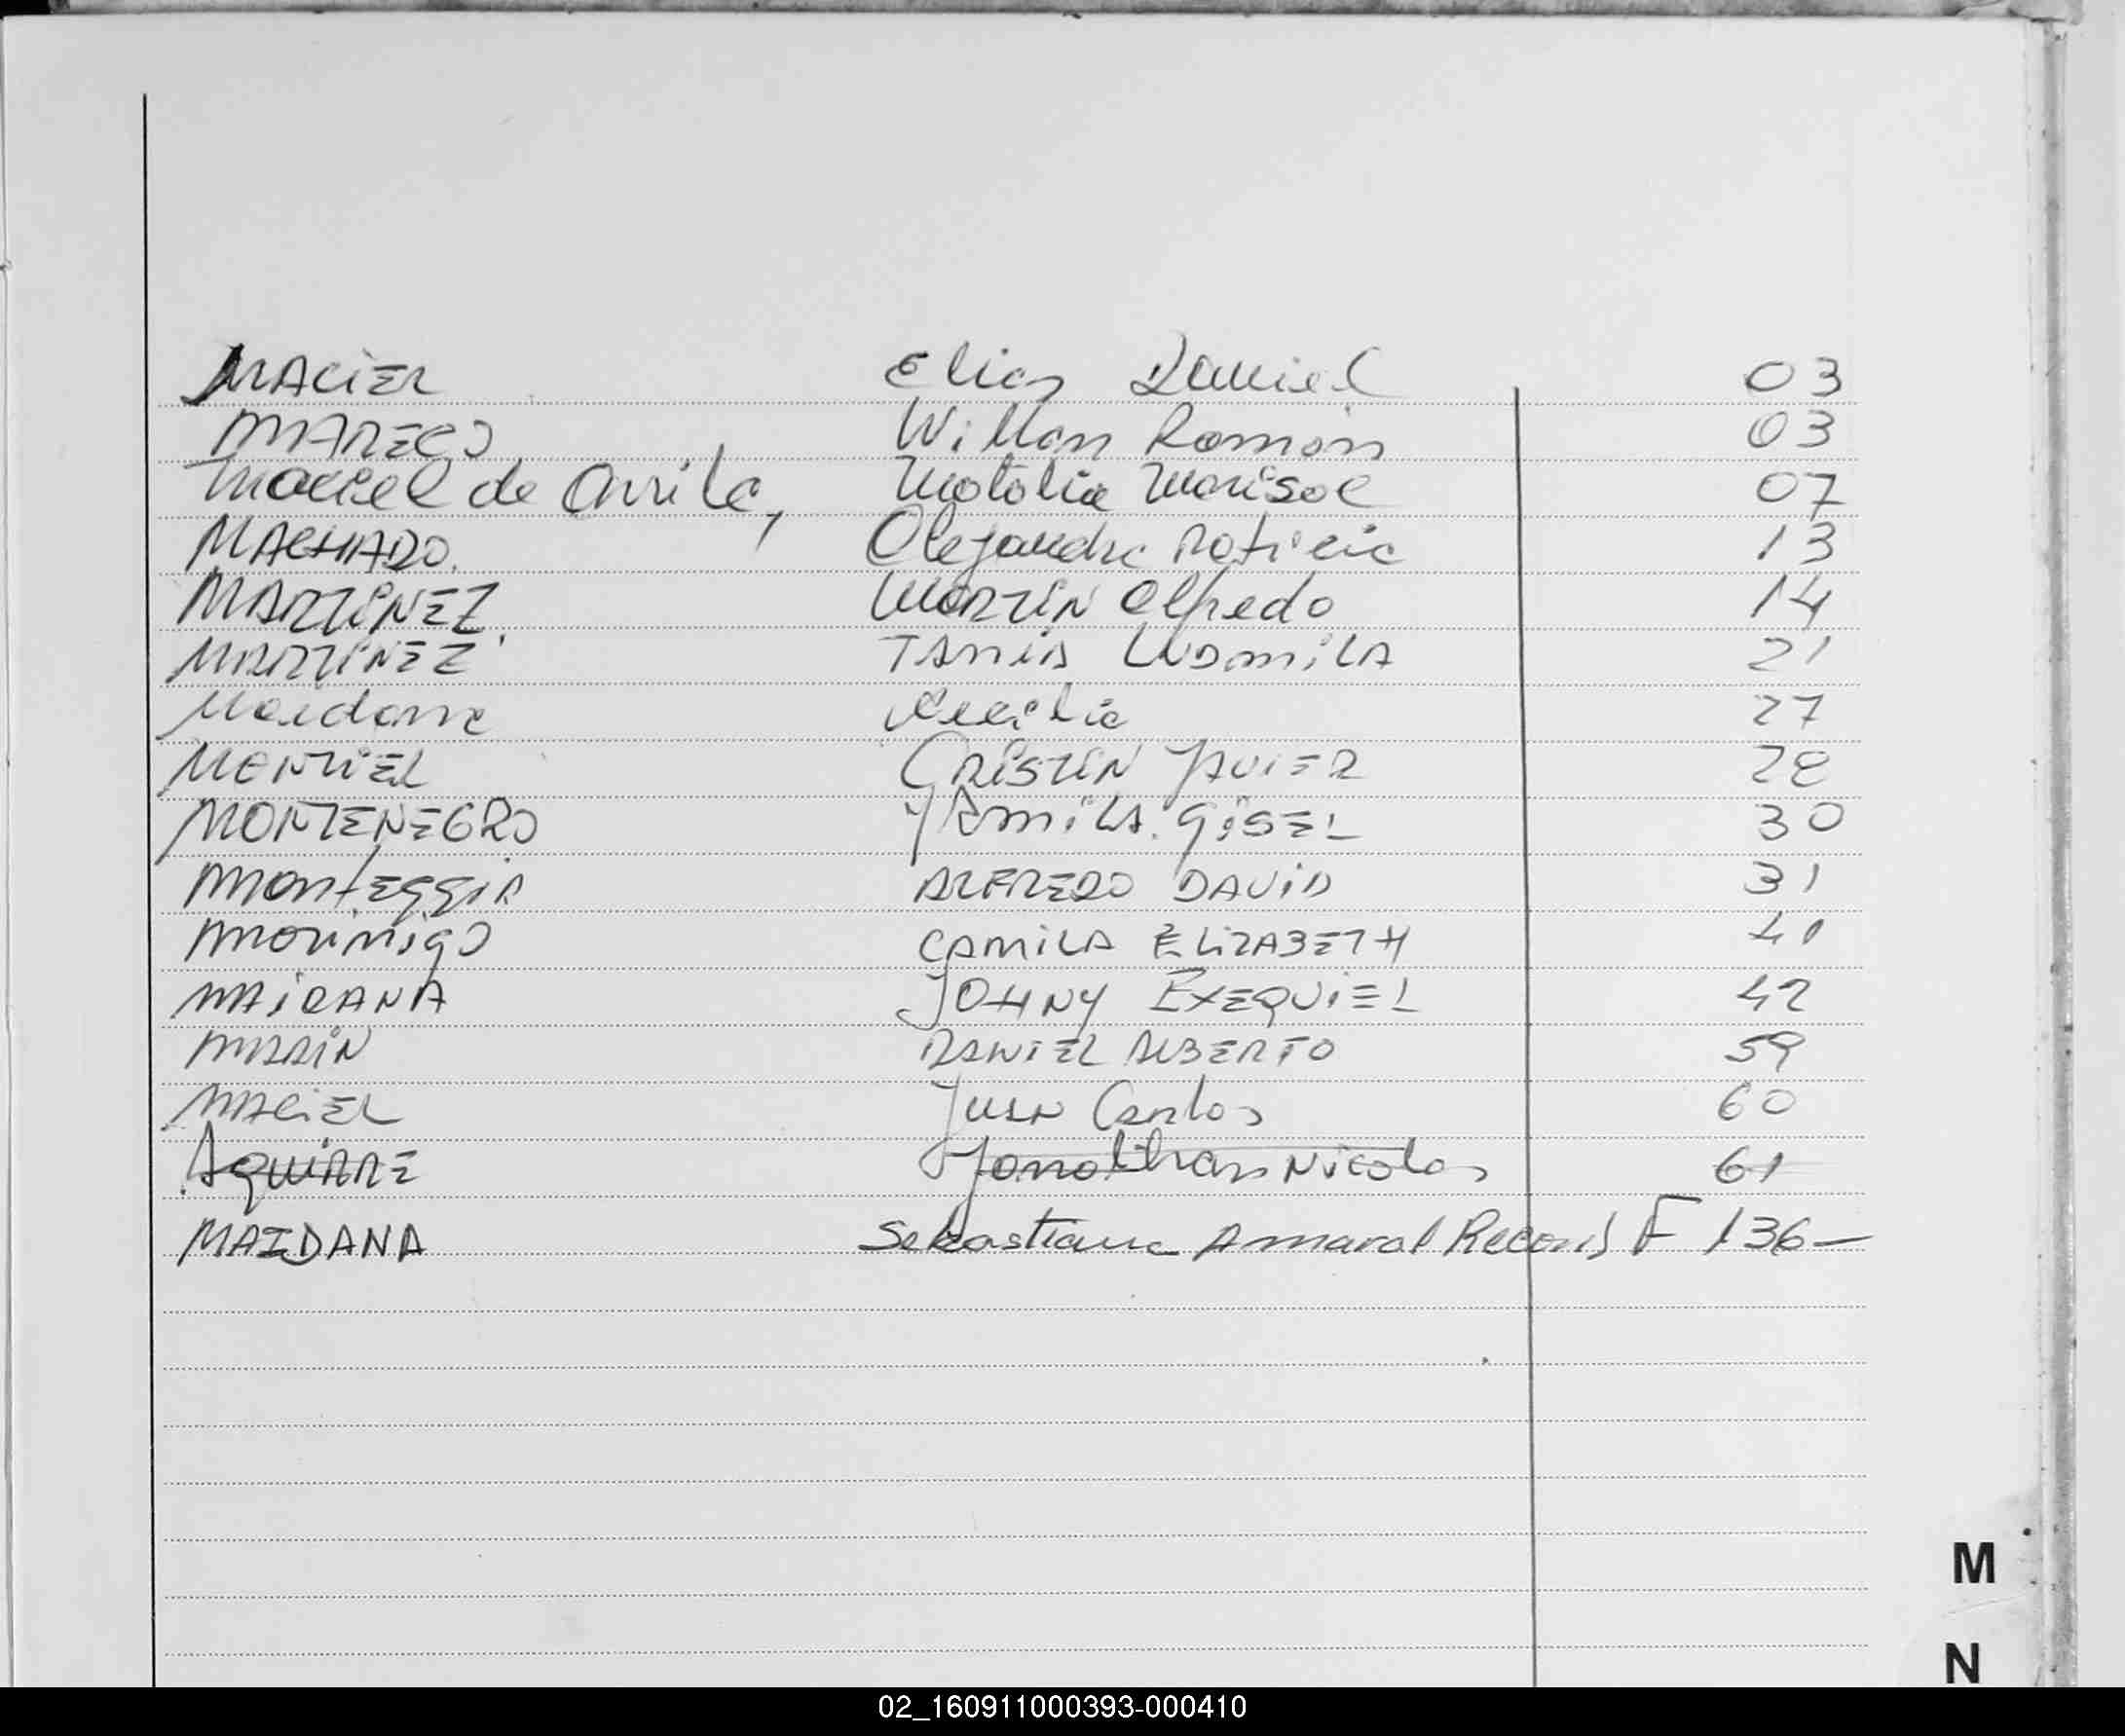 MACIEL Elias Daniel 03
MARECO Willian Ramón 03
Maciel de Avila, Natalia Marisol 07
MACHADO. Alejandra Patricia 13
MARTINEZ. Martin Alfredo 14
MARTINEZ TANIA LUDMILA 21
Maidana Cecilia 27
MONTIEL CRISTIN JAVIER 28
MONTENEGRO YAMILA GISEL 30
MONTEGGIA ALFREDO DAVID 31
MORINIGO CAMILA ELIZABETH 41
MAIDANA JOHNY EXEQUIEL 42
MARIN DANIEL ALBERTO 59
MACIEL Juan Carlos 60
AGUIRRE Jonathan Nicolas 61
MAIDANA Sebastiana Amaral F 136-
M
N
02_160911000393-000410